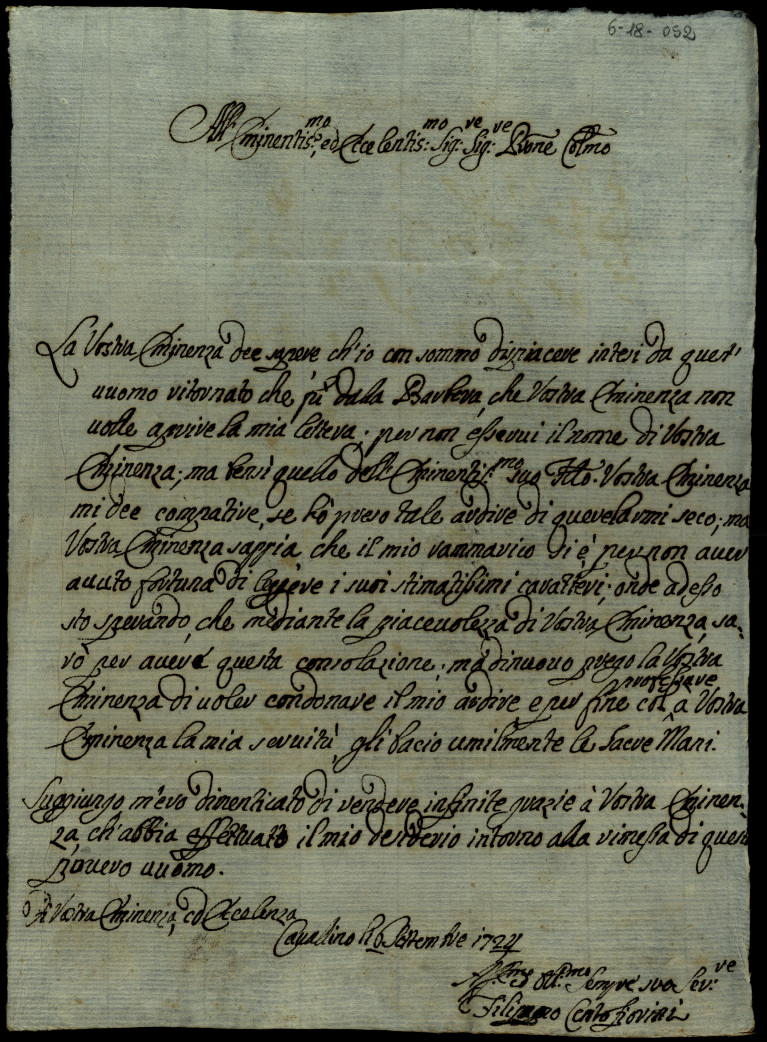 6-18-092
Eminentis:mo, ed Eccelentis:mo Sig:re Sig:re Prone Colmo
La Vostra Eminenza dee sapere ch'io con sommo dispiacere intesi da quest'
uuomo ritornato che fù dalla Barbera, che Vostra Eminenza non
uolle aprire la mia lettera; per non esserui il nome di Vostra
Eminenza; ma bensì quello dell' Eminentis:mo suo Vostra Eminenza
mi dee compatire, se hò preso tale ardire di querelarmi seco; ma
Vostra Eminenza sappia che il mio rammarico si è per non auer
auuto fortuna di leggere i suoi stimatissimi caratteri; onde adesso
sto sperando, che mediante la piaceuolezza di Vostra Eminenza, sa-
rò per avere questa consolazione; ma di nuouo prego la Vostra
Eminenza di uoler condonare il mio ardire e per fine col professare a Vostra
Eminenza la mia seruitù, gli bacio umilmente le Sacre Mani.
Suggiungo m'ero dimenticato di rendere infinite grazie à Vostra Eminen-
za, ch'abbia effettuato il mio desiderio intorno alla rimessa di questo
pouero uuomo.
Di Vostra Eminenza, ed Eccelenza
li 6 Settembre 1724
Sempre suo Ser:re
Filippo